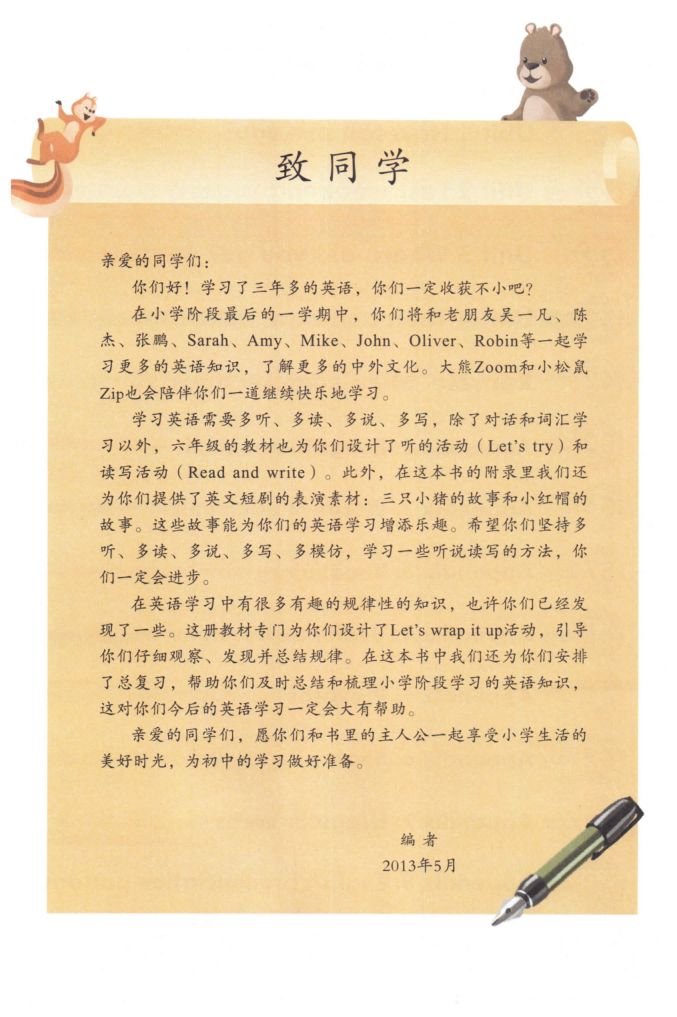 致同学
亲爱的同学们：
你们好！学习了三年多的英语，你们一定收获不小吧？
在小学阶段最后的一学期中，你们将和老朋友吴一凡、陈
杰、张鹏、Sarah、Amy、Mike、John、Oliver、Robin等一起学
习更多的英语知识，了解更多的中外文化。大熊Zoom和小松鼠
Zip也会陪伴你们一道继续快乐地学习。
学习英语需要多听、多读、多说、多写，除了对话和词汇学
习以外，六年级的教材也为你们设计了听的活动（Let's try）和
读写活动（Read and write）。此外，在这本书的附录里我们还
为你们提供了英文短剧的表演素材：三只小猪的故事和小红帽的
故事。这些故事能为你们的英语学习增添乐趣。希望你们坚持多
听、多读、多说、多写、多模仿，学习一些听说读写的方法，你
们一定会进步。
在英语学习中有很多有趣的规律性的知识，也许你们已经发
现了一些。这册教材专门为你们设计了Let's wrap it up活动，引导
你们仔细观察、发现并总结规律。在这本书中我们还为你们安排
了总复习，帮助你们及时总结和梳理小学阶段学习的英语知识，
这对你们今后的英语学习一定会大有帮助。
亲爱的同学们，愿你们和书里的主人公一起享受小学生活的
美好时光，为初中的学习做好准备。
编者
2013年5月